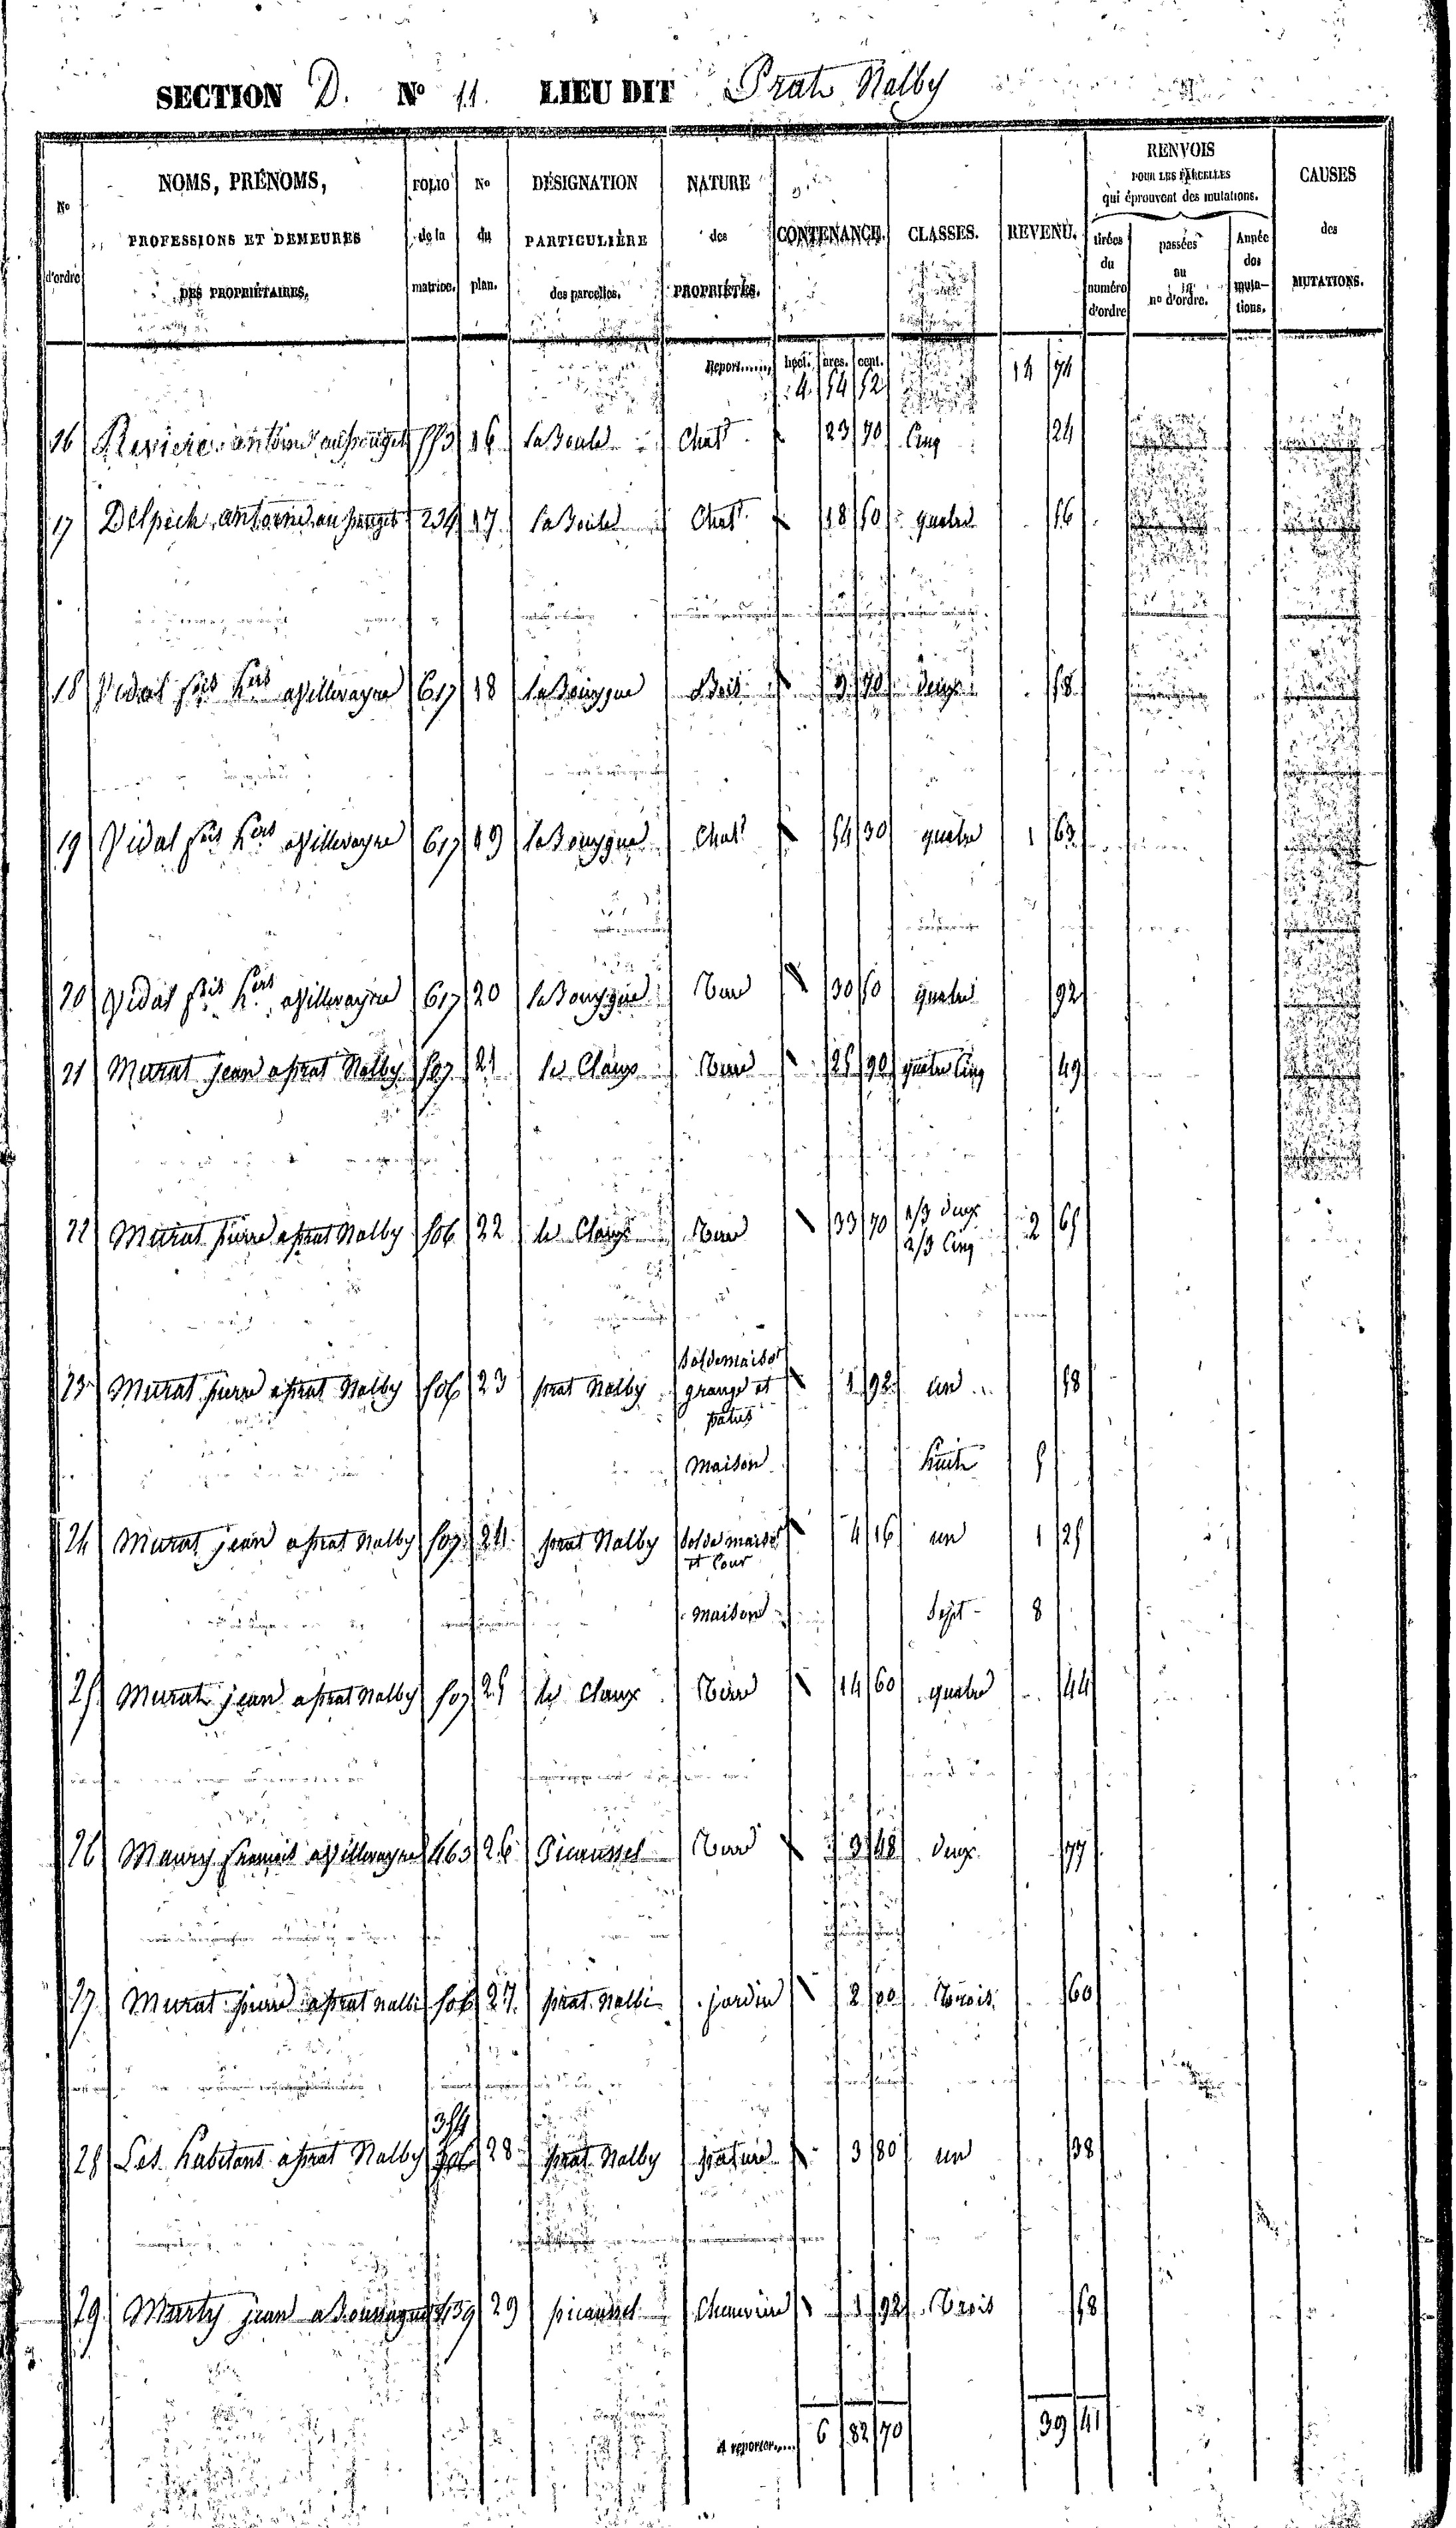 SECTION D. No 11. LIEU DIT Prat Nalby
No d'ordre
NOMS, PRÉNOMS,
PROFESSIONS ET DEMEURES
DES PROPRIÉTAIRES.
FOLIO de la matrice.
No du plan.
DÉSIGNATION
PARTICULIÈRE
des parcelles.
NATURE
des
PROPRIÉTÉS.
CONTENANCE.
CLASSES.
REVENU.
RENVOIS
POUR LES PARCELLES
qui éprouvent des mutations.
tirées du numéro d'ordre
passées au no d'ordre.
Année des muta-tions.
CAUSES
des
MUTATIONS.
Report...... hect. ares. cent.
4 54 52 14 74
16 Reviere antoine au pouget 553 16 la Boule Chat 23 70 Cinq 24
17 Delpech antoine au pouget 234 17 la Boule Chat 18 60 quatre 56
18 Vidal fois hers a Villevayre 617 18 la Bouygue Bois 9 70 deux 58
19 Vidal fois hers a Villevayre 617 19 la Bouygue Chat 54 30 quatre 1 63
20 Vidal fois hers a Villevayre 617 20 la Bouygue Terre 30 60 quatre 92
21 Murat jean a prat Nalby 507 21 le Claux Terre 25 90 quatre Cinq 49
22 Murat pierre a prat Nalby 506 22 le Claux Terre 33 70 1/3 deux 2/3 Cinq 2 65
23 Murat pierre a prat Nalby 506 23 prat Nalby Sol de maison grange et patus 1 92 un 58
maison huit 5
24 Murat jean a prat Nalby 507 24 prat Nalby Sol de maison et Cour 4 16 un 1 25
maison Sept 8
25 Murat jean a prat Nalby 507 25 le Claux Terre 14 60 quatre 44
26 Maury francois a Villevayre 463 26 Picaussel Terre 3 48 deux 77
27 Murat pierre a prat nalbi 506 27 prat nalbi jardin 2 00 Trois 60
354
28 Les habitans a prat Nalby 506 28 prat Nalby pature 3 80 un 38
29 Marty jean a Boussague 439 29 picaussel Cheneviere 1 92 Trois 58
A reporter..... 6 82 70 39 41